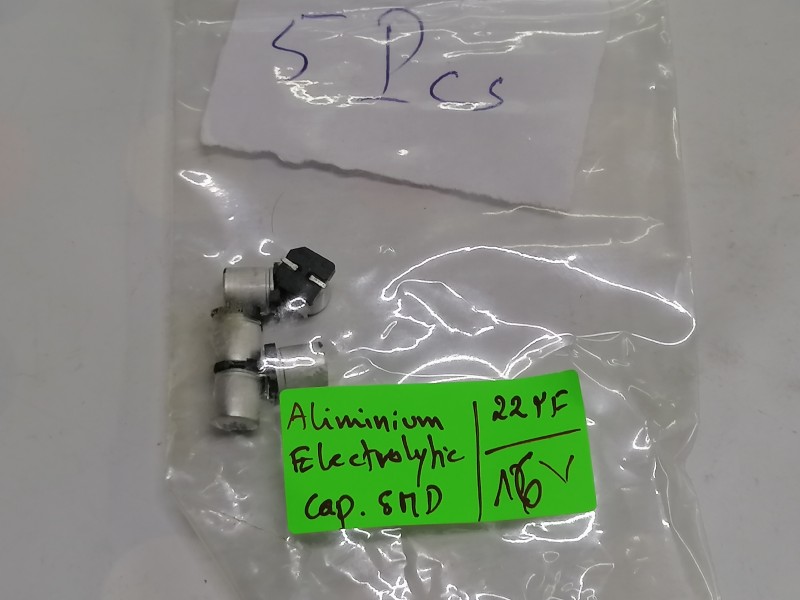 5 Pcs
Aliminium
Electrolytic
Cap. SMD
22 µF
16 V